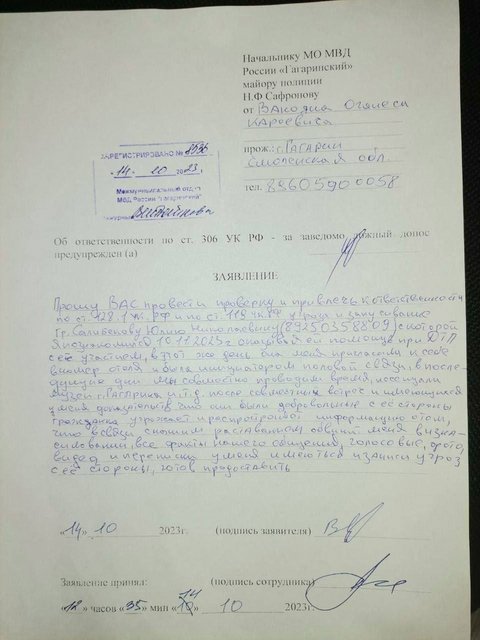 Начальнику МО МВД
России «Гагаринский»
майору полиции
Н.Ф Сафронову
от Вакояна Оганеса
Кареевича
прож.: г. Гагарин
Смоленская обл.
тел. 89605900058
ЗАРЕГИСТРИРОВАНО № 8586
«14» 10 2023 г.
Межмуниципальный отдел
МВД России "Гагаринский"
Об ответственности по ст. 306 УК РФ - за заведомо ложный донос
предупрежден (а)
ЗАЯВЛЕНИЕ
Прошу ВАС провести проверку и привлечь к ответственности
по ст. 128.1 УК РФ и по ст. 119 УК РФ угроза и запугивание
Гр. Юлию Николаевну (89250358809) с которой
Я познакомился 10.11.2023г оказывая ей помощь при ДТП
с её участием, в этот же день она меня пригласила к себе
в номер отеля и была инициатором половой связи, в после-
дующие дни мы совместно проводили время, посещали
музеи г. Гагарина и.т.д. после совместных встреч и имеющихся
у меня доказательств что они были добровольные с её стороны
гражданка угрожает и распространяет информацию о том,
что в связи с моим расставанием обвинит меня в изна-
силовании, все факты нашего общения, голосовые, фото,
видео и переписки у меня имеються и записи угроз
с её стороны, готов предоставить
«14» 10 2023г. (подпись заявителя)
Заявление принял: (подпись сотрудника)
«12» часов «35» мин «14» 10 2023г.